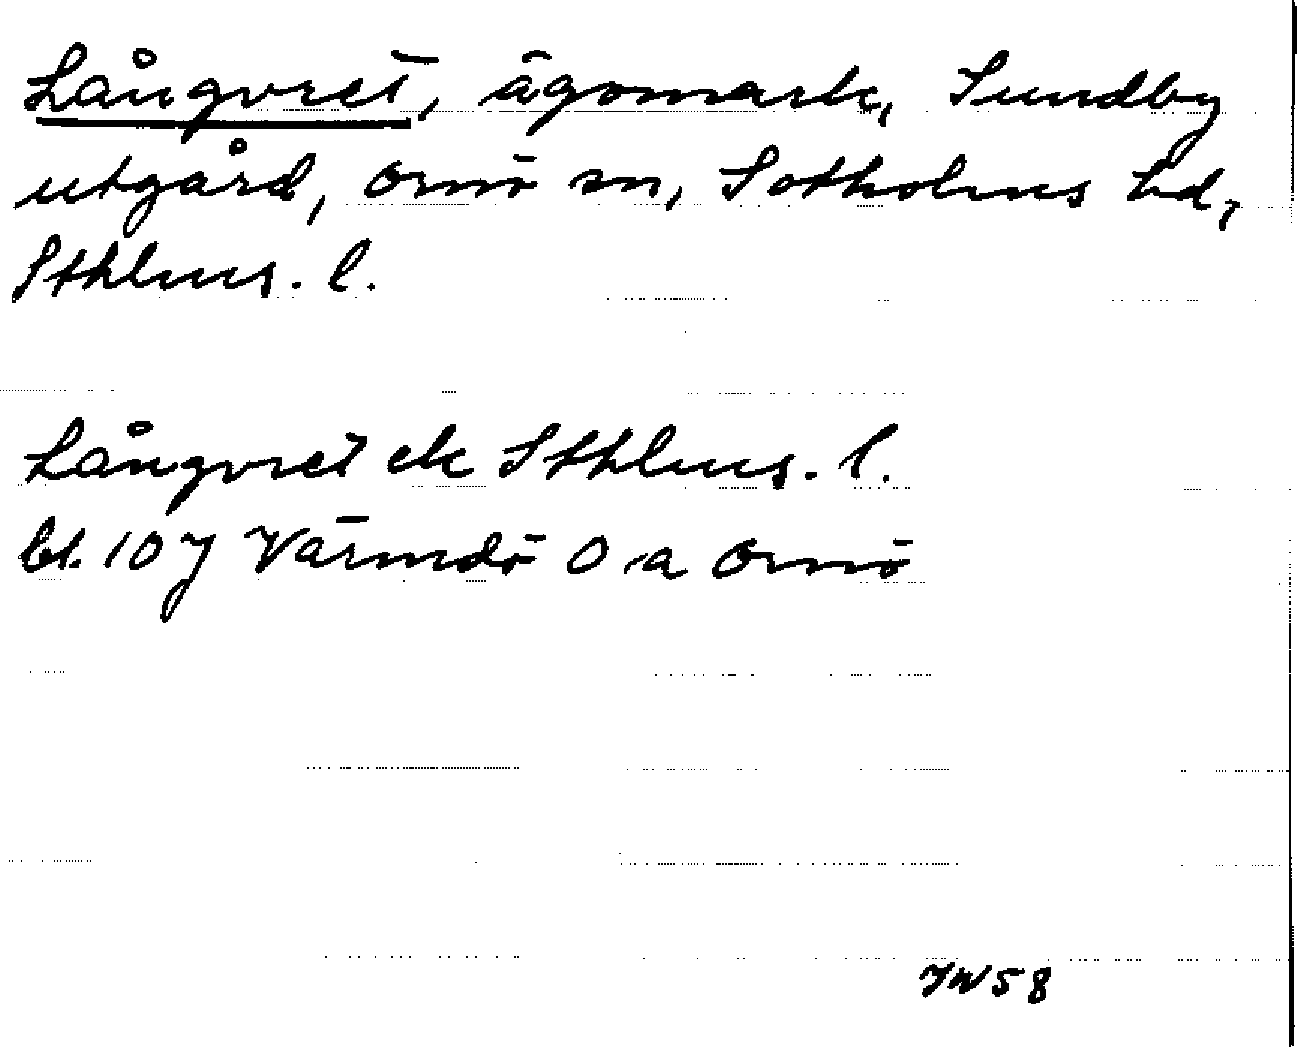 Långvret, ägomark, Sundby
utgård, Ornö sn, Sotholms hd,
Sthlms. l.
Långvret ek Sthlms. l.
bl. 107 Värmdö O a Ornö
YW58